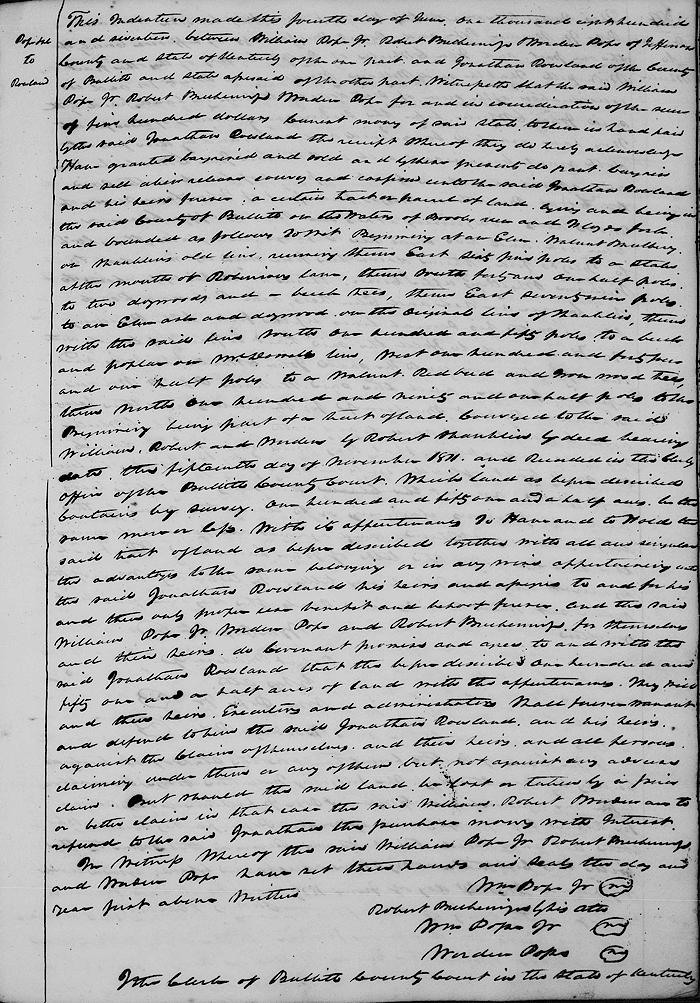 Pope &al
to
Rowland
This Indenture made this fourth day of June, One thousand eight hundred
and seventeen between William Pope Jr. Robert Breckenridge & Worden Pope of Jefferson
County and State of Kentucky of the one part and Jonathan Rowland of the County
of Bullitt and State aforesaid of the other part, Witnesseth that the said William
Pope Jr. Robert Breckenridge Worden Pope for and in consideration of the sum
of five hundred dollars Current money of said State, to them in hand paid
by the said Jonathan Rowland the receipt whereof they do hereby acknowledge
Have granted bargained and sold and by these presents do grant bargain
and sell alien release convey and confirm unto the said Jonathan Rowland
and his heirs forever, a certain tract or parcel of land lying and being in
the said County of Bullitt on the Waters of Brooks run and Floyds fork
and bounded as follows To Wit Beginning at an Elm, Walnut Mulberry,
on Shanklins old line, running thence East Sixty poles to a Stake
at the mouth of Robinsons lane, thence North forty and One half poles
to two dogwoods and a beech tree, thence East seventy poles
to an Elm ash and dogwood on the Original line of Shanklin, thence
with the said line South One hundred and fifty poles to a beech
and poplar on line, West one hundred and forty
and one half poles to a Walnut Redbud and Iron wood tree,
thence North One hundred and ninety and one half poles to the
Beginning being part of a tract of land Conveyed to the said
William, Robert and Worden by Robert Shanklin by deed bearing
date the fifteenth day of November 1811. and Recorded in the Clerks
office of the Bullitt County Court. Which land as before described
Contains by survey One hundred and fifty one and a half acres, be the
same more or less. With its appurtenances To Have and to Hold the
said tract of land as before described together with all and singular
the advantages to the same belonging or in any wise appertaining unto
the said Jonathan Rowland his heirs and assigns to and for his
and their only proper use benefit and behoof forever. And the said
William Pope Jr. Worden Pope and Robert Breckenridge for themselves
and their heirs, do Covenant promise and agree, to and with the
said Jonathan Rowland that the before described One hundred and
fifty one and a half acres of land with the appurtenances They will
and their heirs, Executors and administrators Shall forever warrant
and defend to him the said Jonathan Rowland, and his heirs,
against the Claims of themselves, and their heirs, and all persons
claiming under them or any of them but not against any adverse
claim. But should the said land be lost or taken by a prior
or better claim in that case the said William, Robert Worden are to
refund to the said Jonathan the purchase money with Interest.
In Witness Whereof the said William Pope Jr Robert Breckenridge
and Worden Pope have set their hands and seals the day and
year first above Written
Wm Pope Jr
Robert Breckenridge by his atto
Wm Pope Jr
Worden Pope
I the Clerk of Bullitt County Court in the State of Kentucky